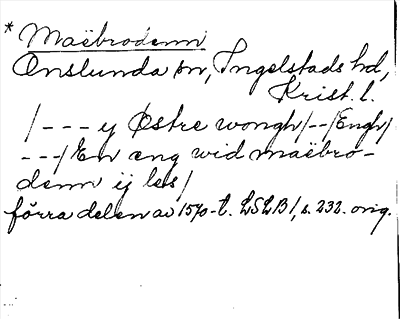 * Maëbrodenn
Onslunda sn, Ingelstads hd,
Krist. l.
/--- y Østre wongh/--/Engh/
---/En æng wid maëbro-
denn ij les/
förra delen av 1570-t. LSLB 1, s. 232. orig.